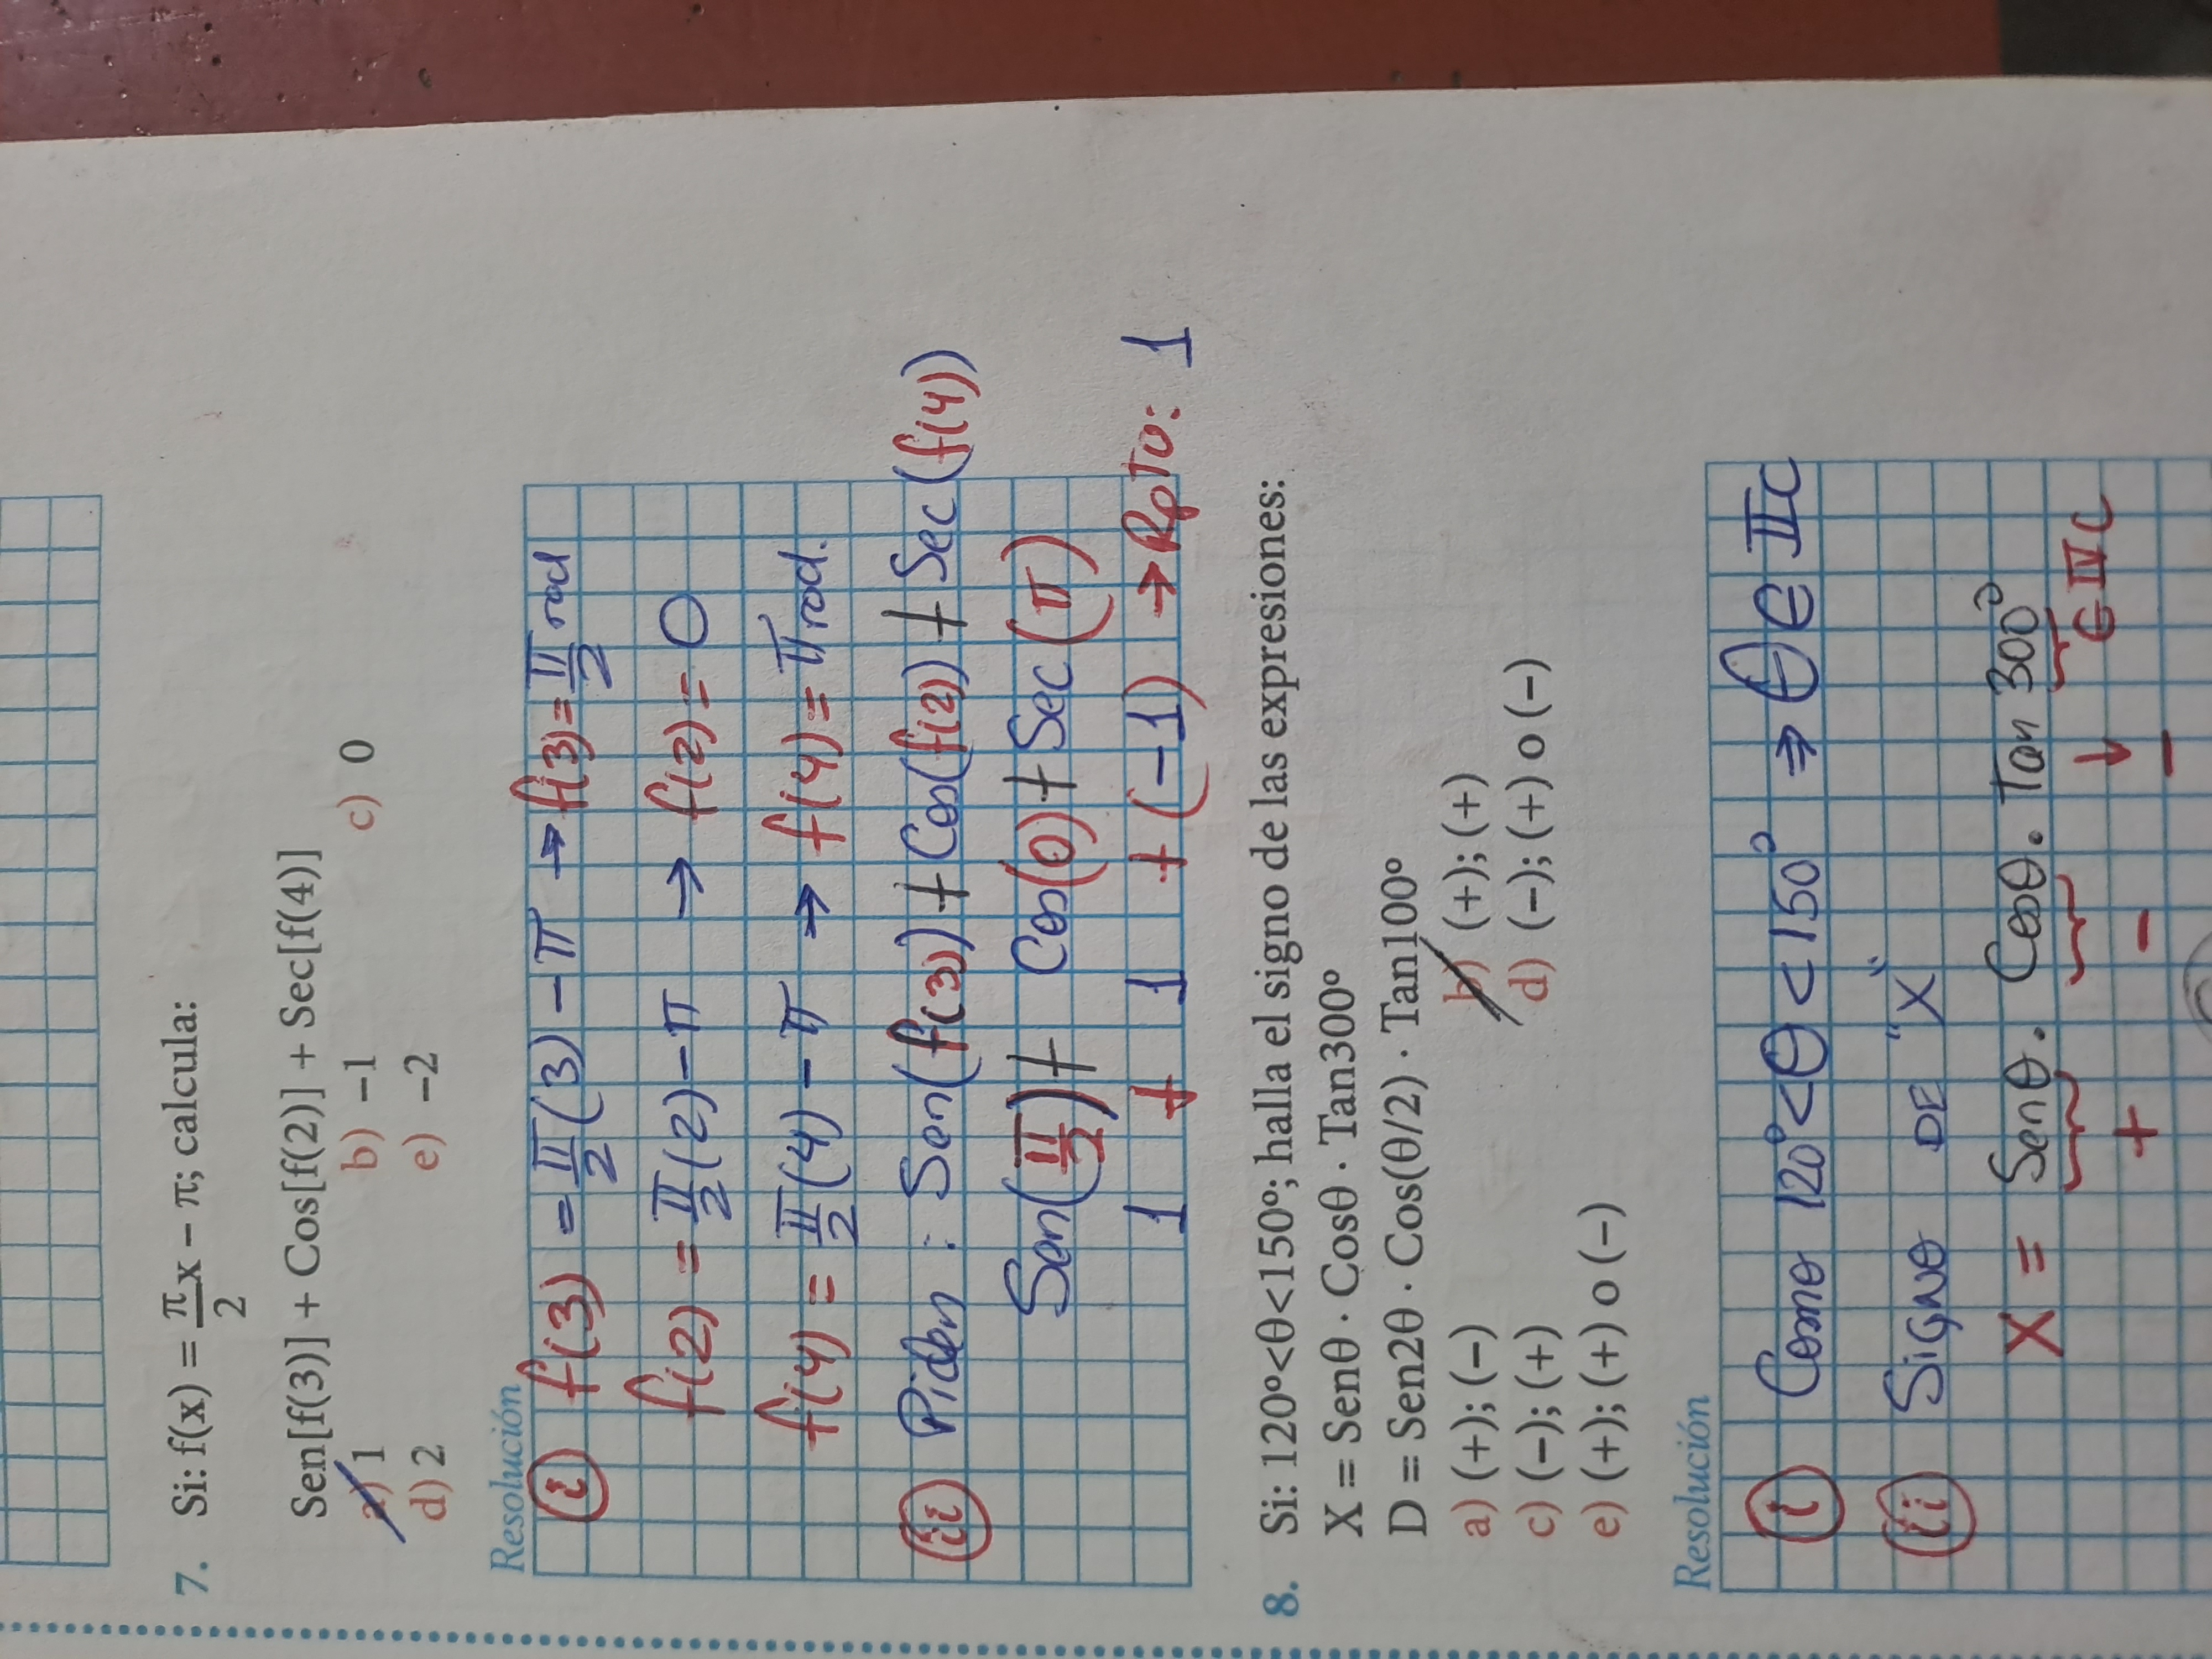 7. Si: f(x) = π/2 x – π; calcula:
Sen[f(3)] + Cos[f(2)] + Sec[f(4)]
a) 1 b) –1 c) 0
d) 2 e) –2
Resolución
i f(3) = π/2 (3) – π → f(3) = π/2 rad
f(2) = π/2 (2) – π → f(2) = 0
f(4) = π/2 (4) – π → f(4) = π rad.
ii Piden : Sen(f(3)) + Cos(f(2)) + Sec(f(4))
Sen(π/2) + Cos(0) + Sec(π)
1 + 1 + (–1) → RpTa: 1
8. Si: 120º<θ<150º; halla el signo de las expresiones:
X = Senθ · Cosθ · Tan300º
D = Sen2θ · Cos(θ/2) · Tan100º
a) (+); (–) b) (+); (+)
c) (–); (+) d) (–); (+) o (–)
e) (+); (+) o (–)
Resolución
i Como 120° < θ < 150° ⇒ θ ∈ IIC
ii SIGNO DE "X"
X = Senθ . Cosθ . Tan 300°
∈ IVC
+ – ↓ –